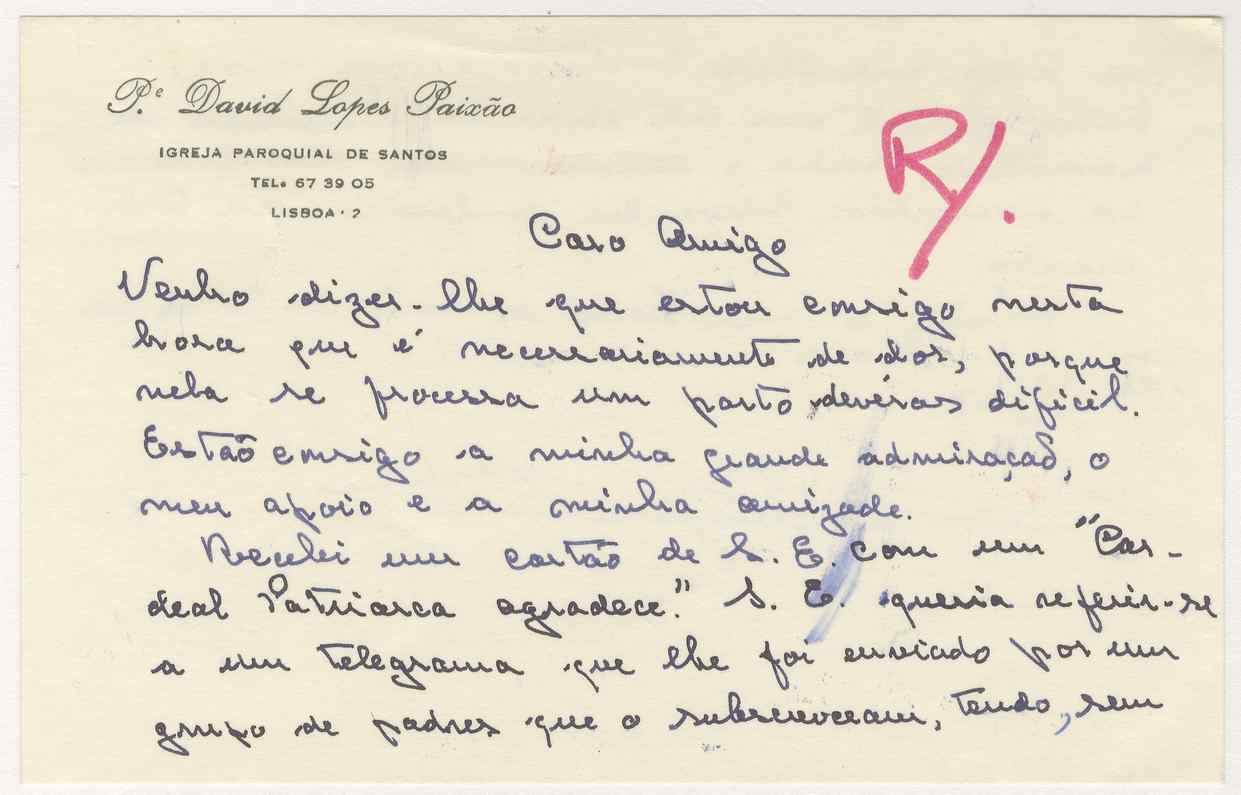 P.e David Lopes Paixão
IGREJA PAROQUIAL DE SANTOS
TEL. 67 39 05
LISBOA · 2
R/.
Caro Amigo
Venho dizer-lhe que estou consigo nesta
hora que é necessariamente de dor, porque
nela se processa um parto deveras difícil.
Estão consigo a minha grande admiração, o
meu apoio e a minha amizade.
Recebi um cartão de S. E. com um "Car-
deal Patriarca agradece." S. E. queria referir-se
a um telegrama que lhe foi enviado por um
grupo de padres que o subscreveram, tendo, sem